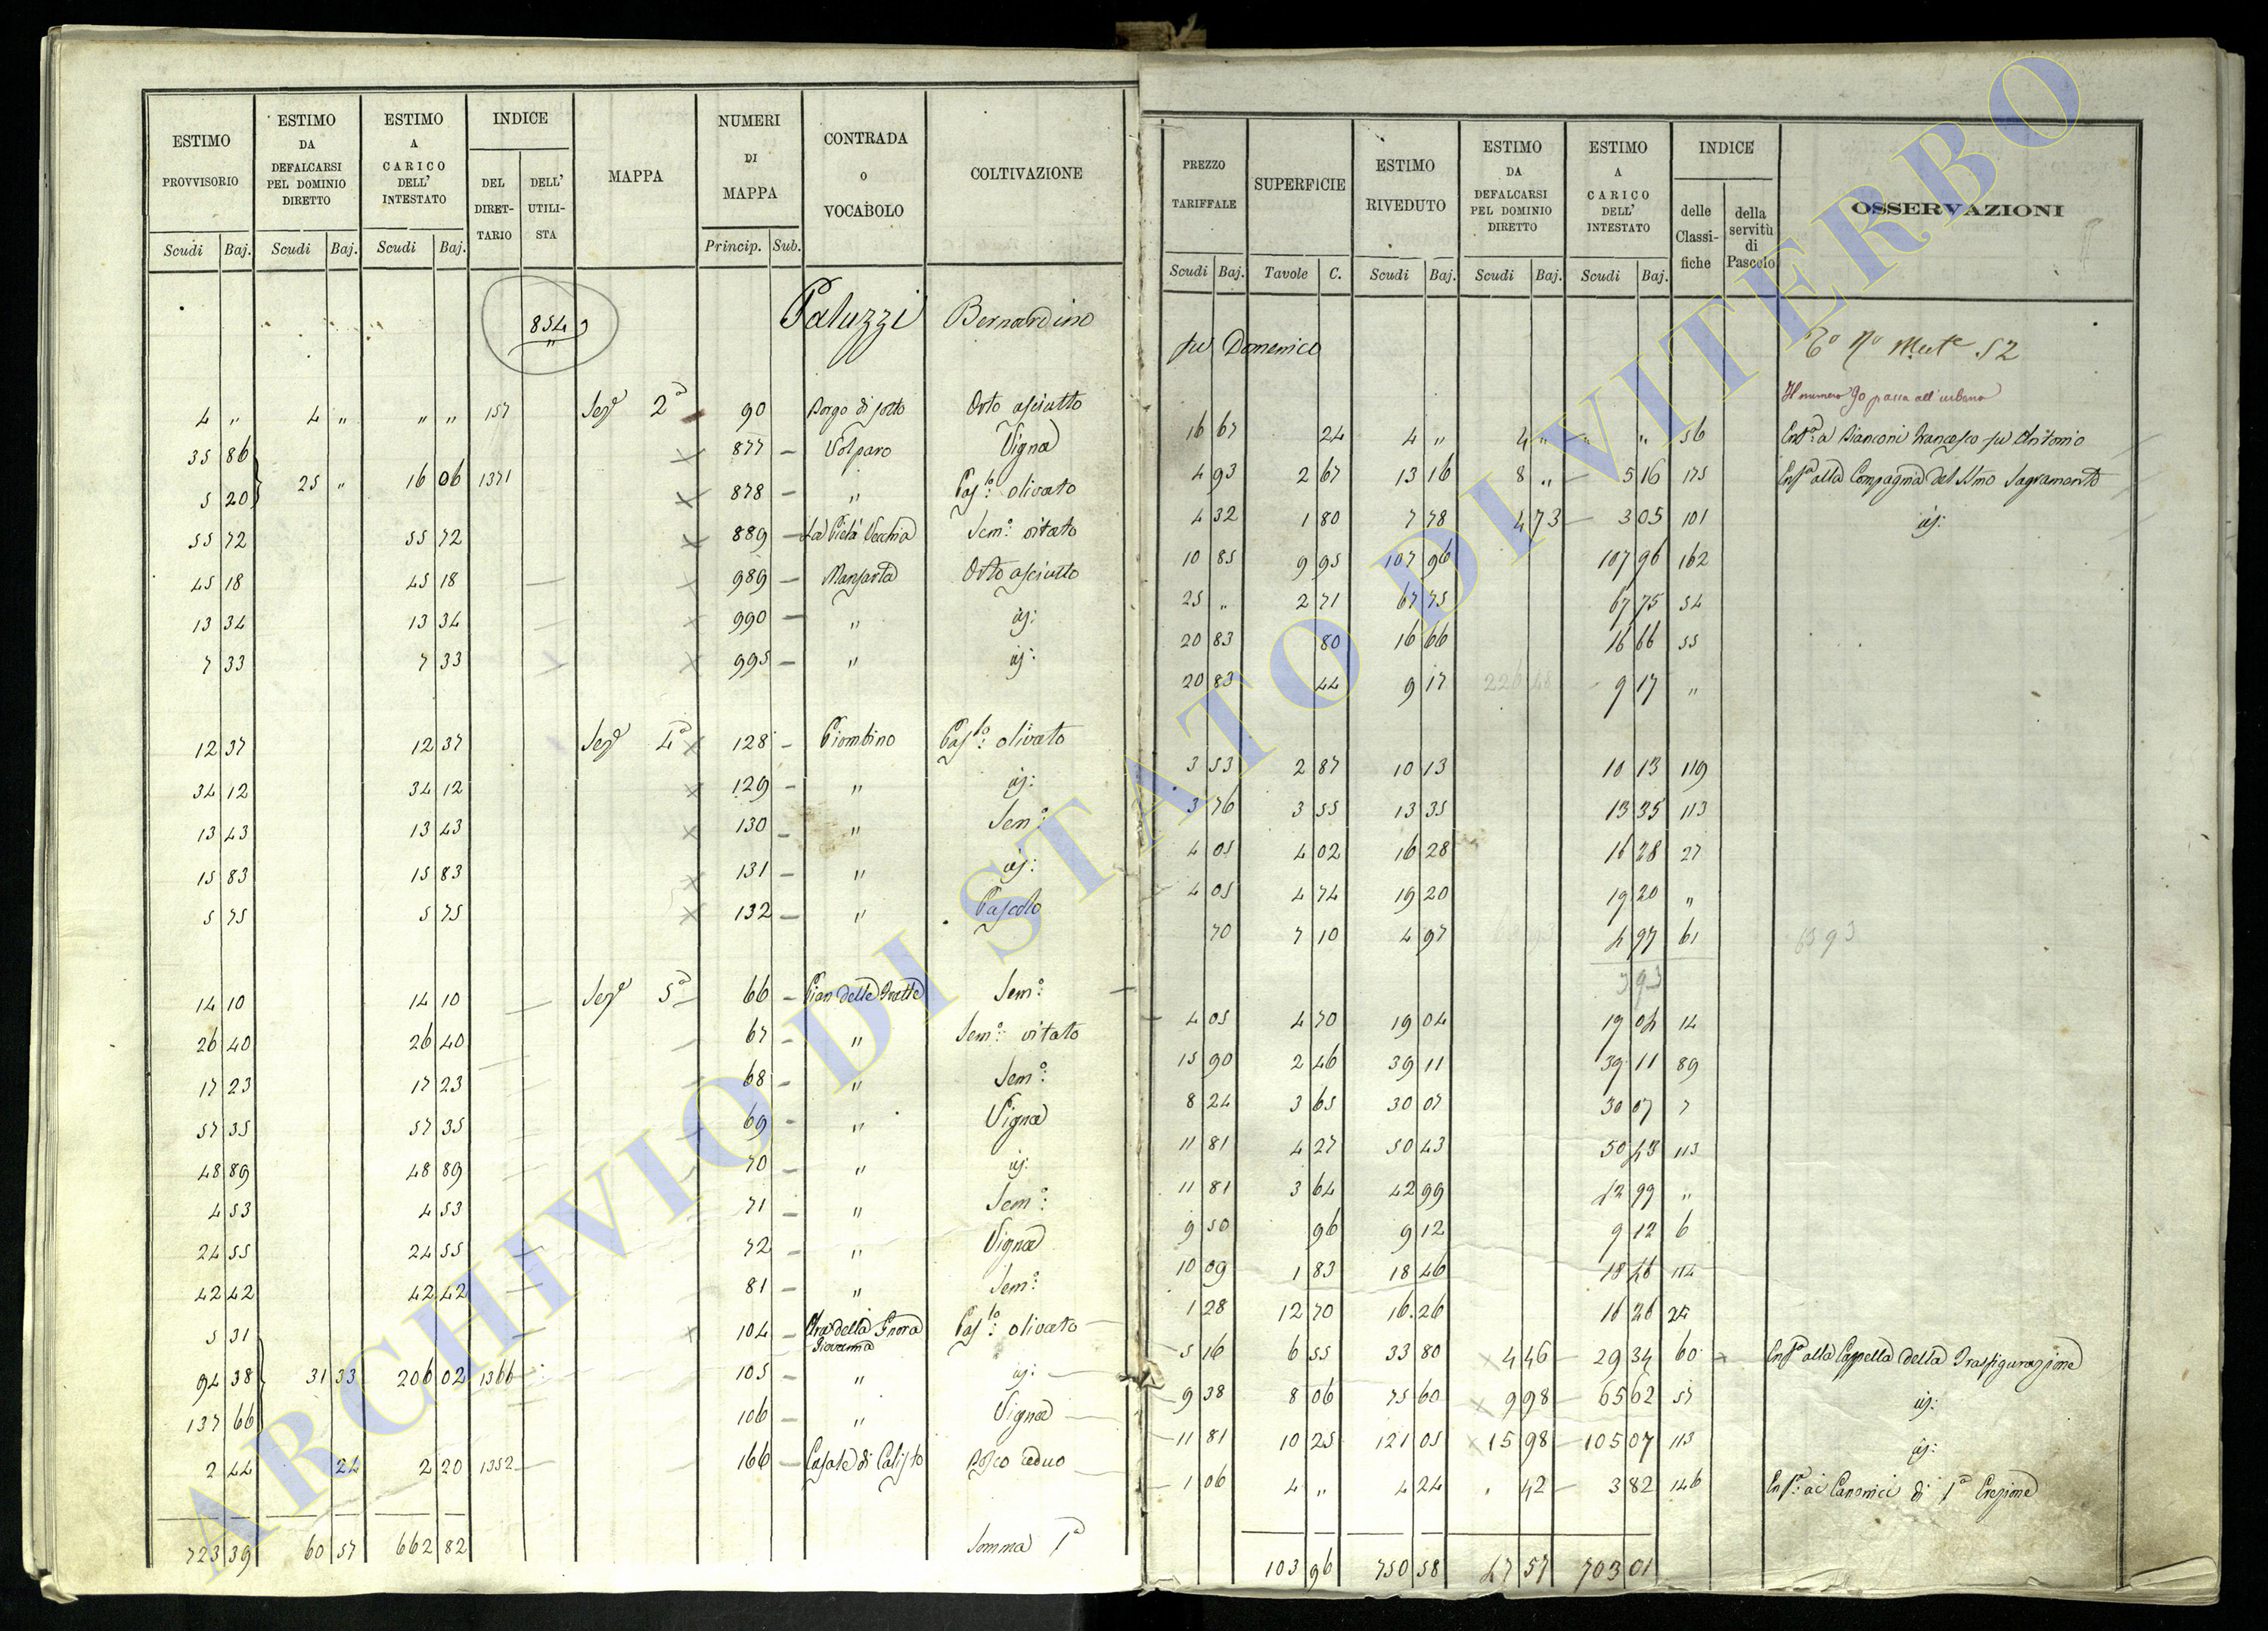 ESTIMO PROVVISORIO | ESTIMO DA DEFALCARSI PEL DOMINIO DIRETTO | ESTIMO A CARICO DELL' INTESTATO | INDICE DEL DIRETTARIO | DELL' UTILISTA | MAPPA | NUMERI DI MAPPA | CONTRADA O VOCABOLO | COLTIVAZIONE
Scudi Baj. | Scudi Baj. | Scudi Baj. | Princip. Sub.
854 Paluzzi Bernardino
4 " 4 " " " 157 Sezᵉ 2ª 90 Borgo di sotto Orto asciutto
35 86 877 Volparo Vigna
25 " 16 06 1371
5 20 878 " Pasᵗᵒ: olivato
55 72 55 72 889 La Pietà Vecchia Semᵒ: vitato
45 18 45 18 989 Mansarta Orto asciutto
13 34 13 34 990 " id:
7 33 7 33 995 " id:
12 37 12 37 Sezᵉ 4ª 128 Piombino Pasᵗᵒ: olivato
34 12 34 12 129 " id:
13 43 13 43 130 " Semᵒ:
15 83 15 83 131 " id:
5 75 5 75 132 " Pascolo
14 10 14 10 Sezᵉ 5ª 66 Pian delle Fratte Semᵒ:
26 40 26 40 67 " Semᵒ: vitato
17 23 17 23 68 " Semᵒ:
57 35 57 35 69 " Vigna
48 89 48 89 70 " id:
4 53 4 53 71 " Semᵒ:
24 55 24 55 72 " Vigna
42 42 42 42 81 " Semᵒ:
5 31 104 Ara della Gnora Giovanna Pasᵗᵒ: olivato
94 38 31 33 206 02 1366 105 " id:
137 66 106 " Vigna
2 44 24 2 20 1352 166 Casale di Calisto Bosco ceduo
723 39 60 57 662 82 Somma 1ª
PREZZO TARIFFALE | SUPERFICIE | ESTIMO RIVEDUTO | ESTIMO DA DEFALCARSI PEL DOMINIO DIRETTO | ESTIMO A CARICO DELL' INTESTATO | INDICE delle Classifiche | della servitù di Pascolo | OSSERVAZIONI
Scudi Baj. | Tavole C. | Scudi Baj. | Scudi Baj. | Scudi Baj.
fu Domenico 52
Il numero 90 passa all'urbano
16 67 24 4 " 4 " " " 56 Enfª: a Bianconi Francesco fu Antonio
4 93 2 67 13 16 8 " 5 16 175 Enfª alla Compagnia del SSmo Sagramento
4 32 1 80 7 78 4 73 3 05 101 id:
10 85 9 95 107 96 107 96 162
25 " 2 71 67 75 67 75 54
20 83 80 16 66 16 66 55
20 83 44 9 17 226 48 9 17 "
3 53 2 87 10 13 10 13 119
3 76 3 55 13 35 13 35 113
4 05 4 02 16 28 16 28 27
4 05 4 74 19 20 19 20 "
70 7 10 4 97 4 97 61 63 93
3 93
4 05 4 70 19 04 19 04 14
15 90 2 46 39 11 39 11 89
8 24 3 65 30 07 30 07 7
11 81 4 27 50 43 50 43 113
11 81 3 64 42 99 42 99 "
9 50 96 9 12 9 12 6
10 09 1 83 18 46 18 46 114
1 28 12 70 16 26 16 26 25
5 16 6 55 33 80 4 46 29 34 60 Enfª alla Cappella della Trasfigurazione
9 38 8 06 75 60 9 98 65 62 57 id:
11 81 10 25 121 05 15 98 105 07 113 id:
1 06 4 " 4 24 42 3 82 146 Enfª: ai Canonici di 1ª Erezione
103 96 750 58 47 57 703 01
ARCHIVIO DI STATO DI VITERBO